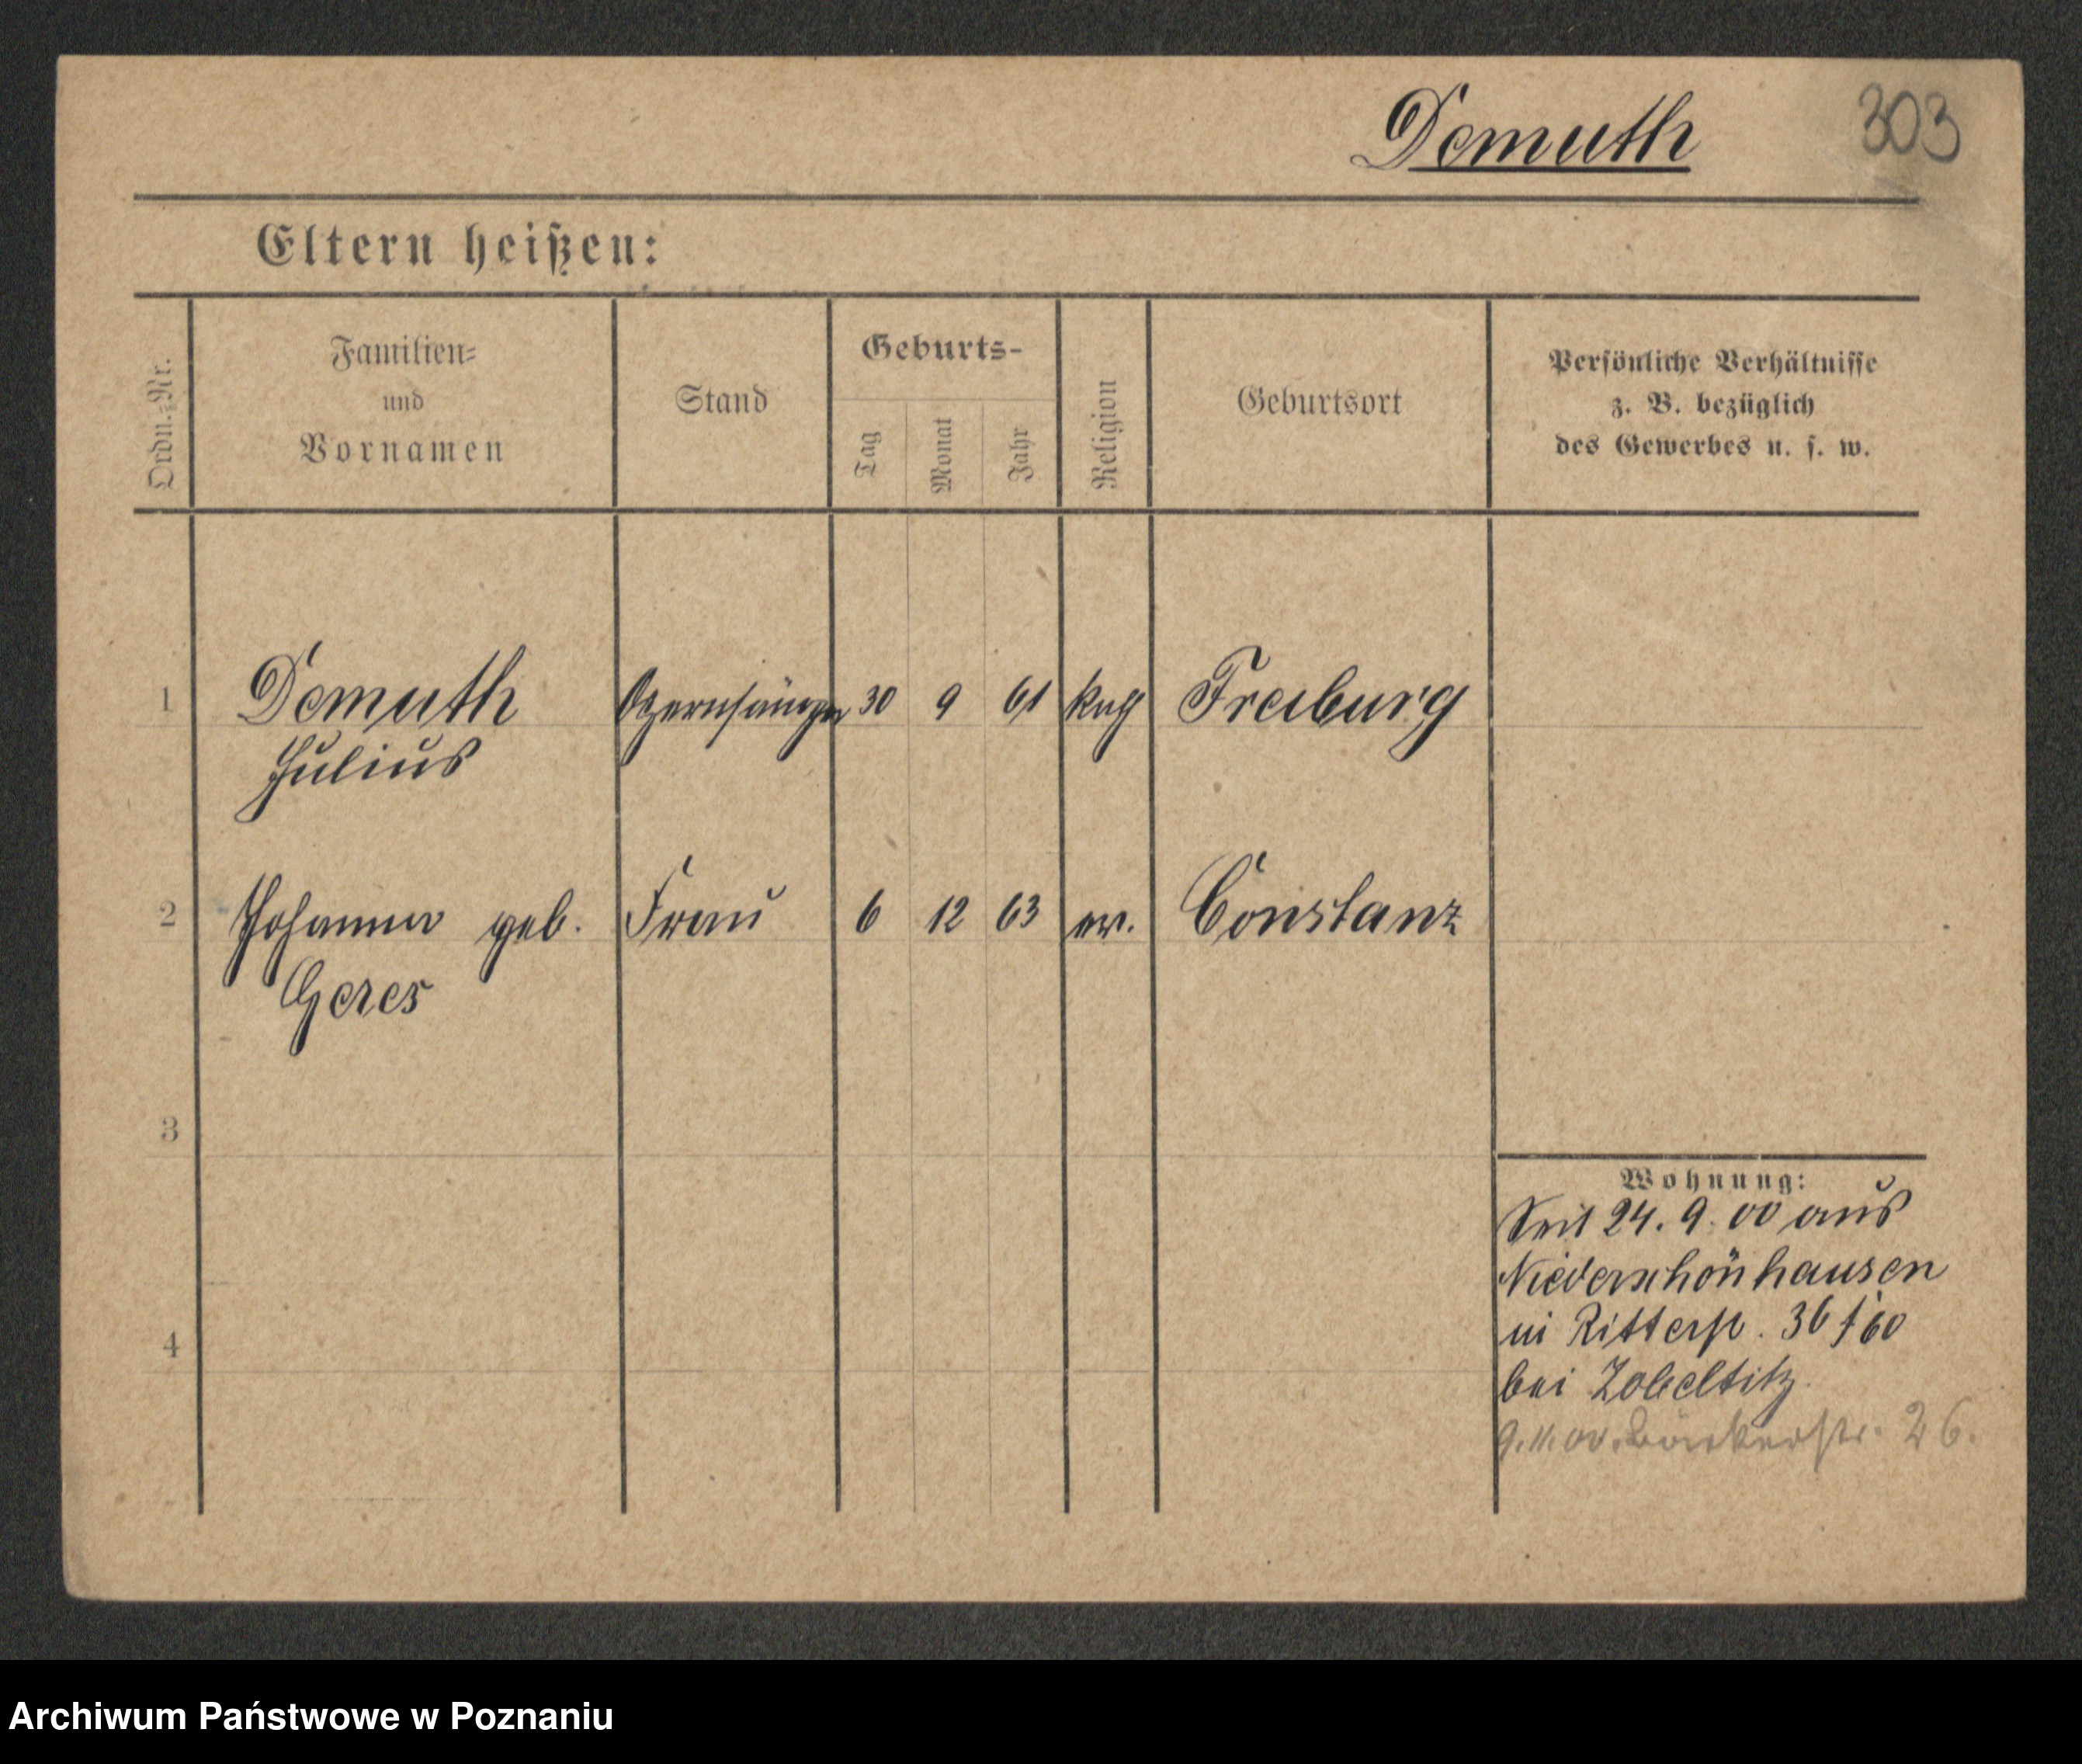 Demuth 303
Eltern heißen:
Ordn.=Nr.
Familien=
und
Vornamen
Stand
Geburts-
Tag
Monat
Jahr
Religion
Geburtsort
Persönliche Verhältnisse
z. B. bezüglich
des Gewerbes u. s. w.
1 Demuth Opernsänger 30 9 61 Freiburg
Julius
2 Johanna geb. Frau 6 12 63 ev. Constanz
Geres
3
4
Wohnung:
Seit 24. 9. 00 aus
Niederschönhausen
in Ritterstr. 36
bei Zobeltitz
9.11.00. Bäckerstr. 26.
Archiwum Państwowe w Poznaniu